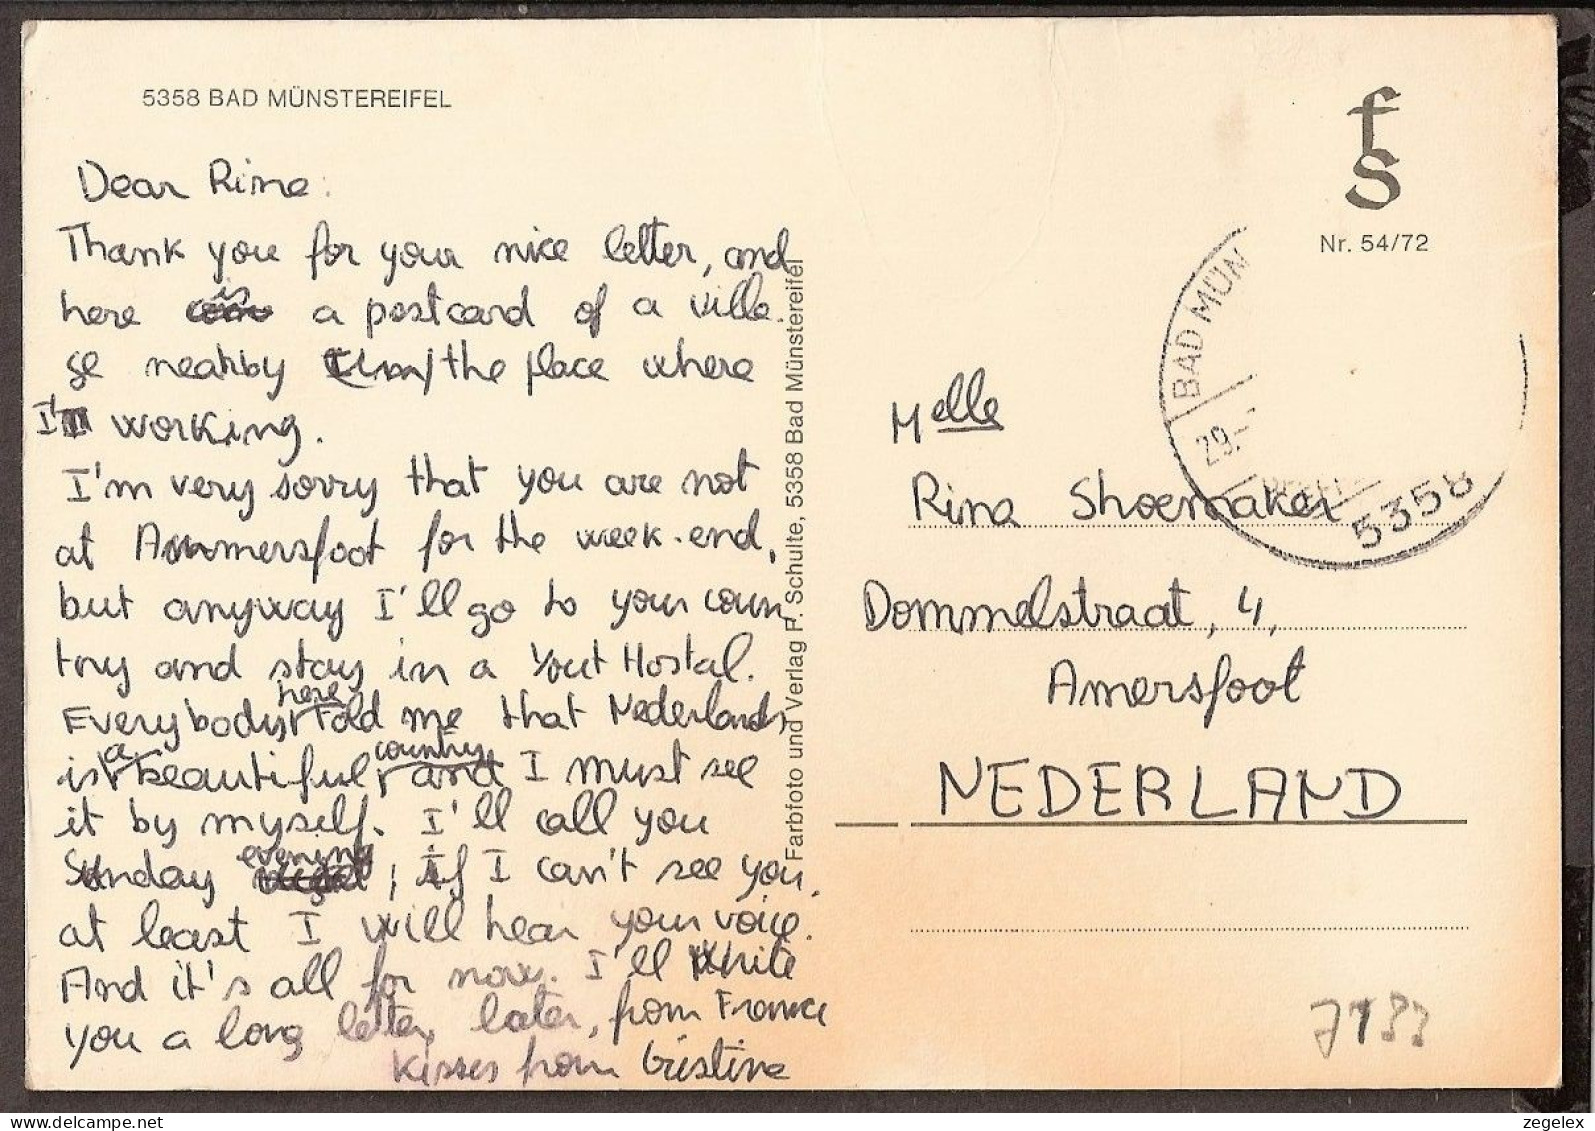 5358 BAD MÜNSTEREIFEL
Dear Rina:
Thank you for your nice letter, and
here is a postcard of a villa-
ge nearby the place where
I'm working.
I'm very sorry that you are not
at Ammersfoot for the week-end,
but anyway I'll go to your coun
try and stay in a Yout Hostal.
Everybody here told me that Nederlands
is a beautiful country and I must see
it by myself. I'll call you
Sunday evening, if I can't see you,
at least I will hear your voice.
And it's all for now. I'll write
you a long letter later, from France
Kisses from Cristina
Farbfoto und Verlag F. Schulte, 5358 Bad Münstereifel
fs
Nr. 54/72
BAD MÜN
29.
5358
Melle
Rina Shoemaker
Dommelstraat, 4,
Amersfoot
NEDERLAND
zegelex